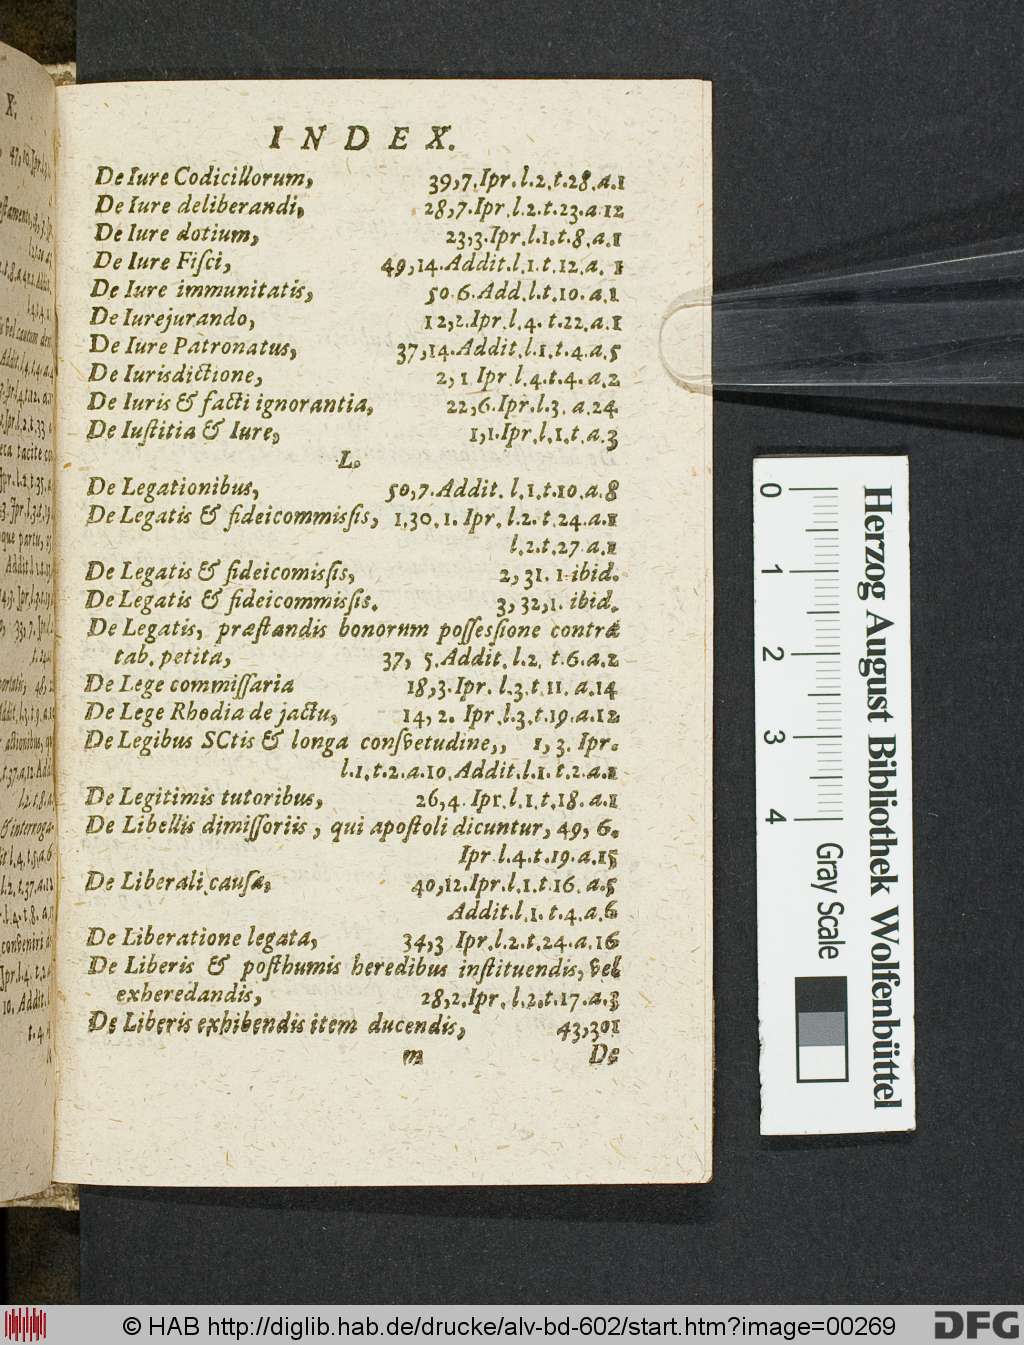 INDEX.
De Iure Codicillorum, 39,7.Ipr.l.2.t.28.a.1
De Iure deliberandi, 28,7.Ipr.l.2.t.23.a.12
De Iure dotium, 23,3.Ipr.l.1.t.8.a.1
De Iure Fiſci, 49,14.Addit.l.1.t.12.a.1
De Iure immunitatis, 50.6.Add.l.t.10.a.1
De Iurejurando, 12,2.Ipr.l.4.t.22.a.1
De Iure Patronatus, 37,14.Addit.l.1.t.4.a.5
De Iurisdictione, 2,1 Ipr.l.4.t.4.a.2
De Iuris & facti ignorantia, 22,6.Ipr.l.3. a.24
De Iuſtitia & Iure, 1,1.Ipr.l.1.t.a.3
L.
De Legationibus, 50,7.Addit. l.1.t.10.a.8
De Legatis & fideicommiſſis, 1.30.1. Ipr. l.2.t.24.a.1
l.2.t.27.a.1
De Legatis & fideicomiſſis, 2,31. 1 ibid.
De Legatis & fideicommiſſis. 3,32,1. ibid.
De Legatis, præſtandis bonorum poſſeſſione contra
tab. petita, 37, 5.Addit.l.2. t.6.a.2
De Lege commiſſaria 18,3.Ipr. l.3.t.11. a.14
De Lege Rhodia de jactu, 14,2. Ipr.l.3.t.19.a.12
De Legibus SCtis & longa conſvetudine,, 1,3. Ipr.
l.1.t.2.a.10.Addit.l.1.t.2.a.1
De Legitimis tutoribus, 26,4. Ipr.l.1.t.18.a.1
De Libellis dimiſſoriis, qui apoſtoli dicuntur, 49, 6.
Ipr l.4.t.19.a.15
De Liberali cauſa, 40,12.Ipr.l.1.t.16.a.5
Addit.l.1.t.4.a.6
De Liberatione legata, 34,3 Ipr.l.2.t.24.a.16
De Liberis & poſthumis heredibus inſtituendis, vel
exheredandis, 28,2.Ipr. l.2.t.17.a.3
De Liberis exhibendis item ducendis, 43,301
m De
0 1 2 3 4
Gray Scale
Herzog August Bibliothek Wolfenbüttel
© HAB http://diglib.hab.de/drucke/alv-bd-602/start.htm?image=00269
DFG